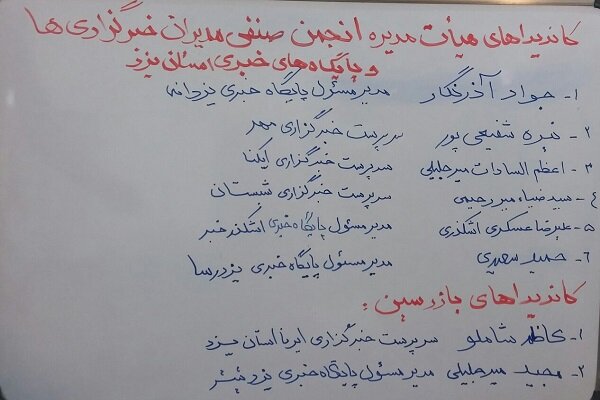 کاندیداهای هیأت مدیره انجمن صنفی مدیران خبرگزاری ها
و پایگاه های خبری استان یزد
۱- جواد آذرنگار مدیر مسئول پایگاه خبری یزدامه
۲- نیره شفیعی پور سرپرست خبرگزاری مهر
۳- اعظم السادات میرجلیلی سرپرست خبرگزاری ایکنا
٤- سید ضیاء میررحیمی سرپرست خبرگزاری شبستان
۵- علیرضا عسکری اشکذری مدیر مسئول پایگاه خبری اشکذر خبر
٦- حمید سعیدی مدیر مسئول پایگاه خبری یزدرسا
کاندیداهای بازرسین :
۱- کاظم شاملو سرپرست خبرگزاری ایرنا استان یزد
۲- مجید میرجلیلی مدیر مسئول پایگاه خبری